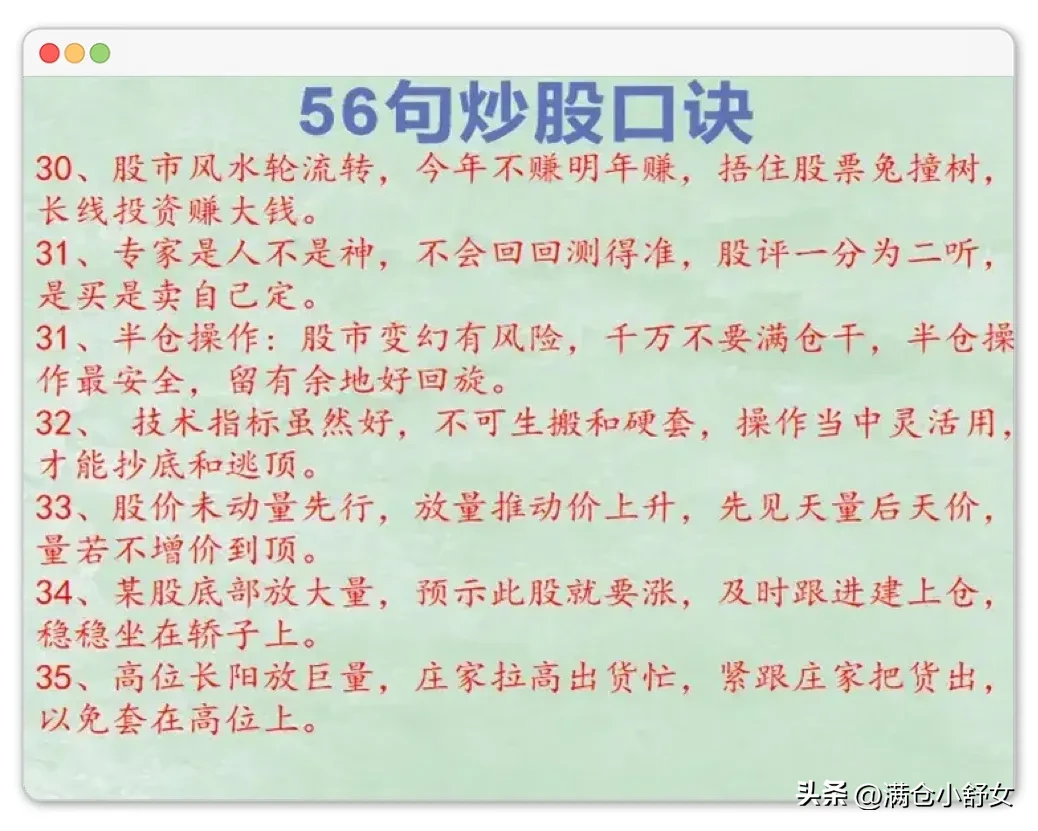 56句炒股口诀
30、股市风水轮流转，今年不赚明年赚，捂住股票兔撞树，
长线投资赚大钱。
31、专家是人不是神，不会回回测得准，股评一分为二听，
是买是卖自己定。
31、半仓操作：股市变幻有风险，千万不要满仓干，半仓操
作最安全，留有余地好回旋。
32、 技术指标虽然好，不可生搬和硬套，操作当中灵活用，
才能抄底和逃顶。
33、股价未动量先行，放量推动价上升，先见天量后天价，
量若不增价到顶。
34、某股底部放大量，预示此股就要涨，及时跟进建上仓，
稳稳坐在轿子上。
35、高位长阳放巨量，庄家拉高出货忙，紧跟庄家把货出，
以免套在高位上。
头条 @满仓小舒女